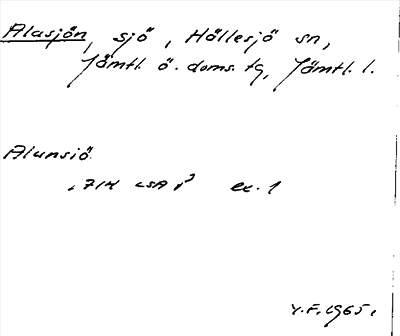 Alasjön, sjö, Hällesjö sn,
Jämtl. ö. doms. tg, Jämtl. l.
Alunsiö
1714 LSA ex. 1
Y.F. 1965.